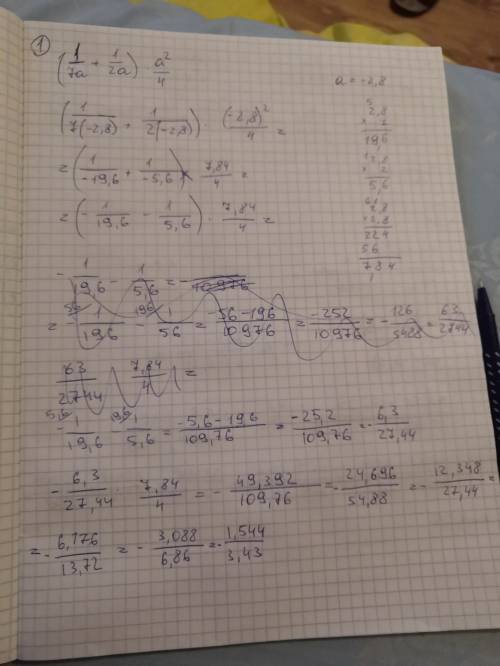 1
(1/7a + 1/2a) a²/4
a = -2,8
(1/7(-2,8) + 1/2(-2,8)) (-2,8)²/4 =
= (1/-19,6 + 1/-5,6) 7,84/4 =
= (- 1/19,6 - 1/5,6) · 7,84/4 =
- 1/19,6 - 1/5,6 = - 10976
= - 1/196 - 1/56 = -56-196/10976 = -252/10976 = - 126/5488 = 63/2744
63/2744 7,84/4 =
- 1/19,6 - 1/5,6 = -5,6-19,6/109,76 = -25,2/109,76 = - 6,3/27,44
- 6,3/27,44 7,84/4 = - 49,392/109,76 = - 24,696/54,88 = - 12,348/27,44 =
= - 6,176/13,72 = - 3,088/6,86 = - 1,544/3,43
2,8
19,6
2,8
× 2
5,6
2,8
×2,8
224
56
784